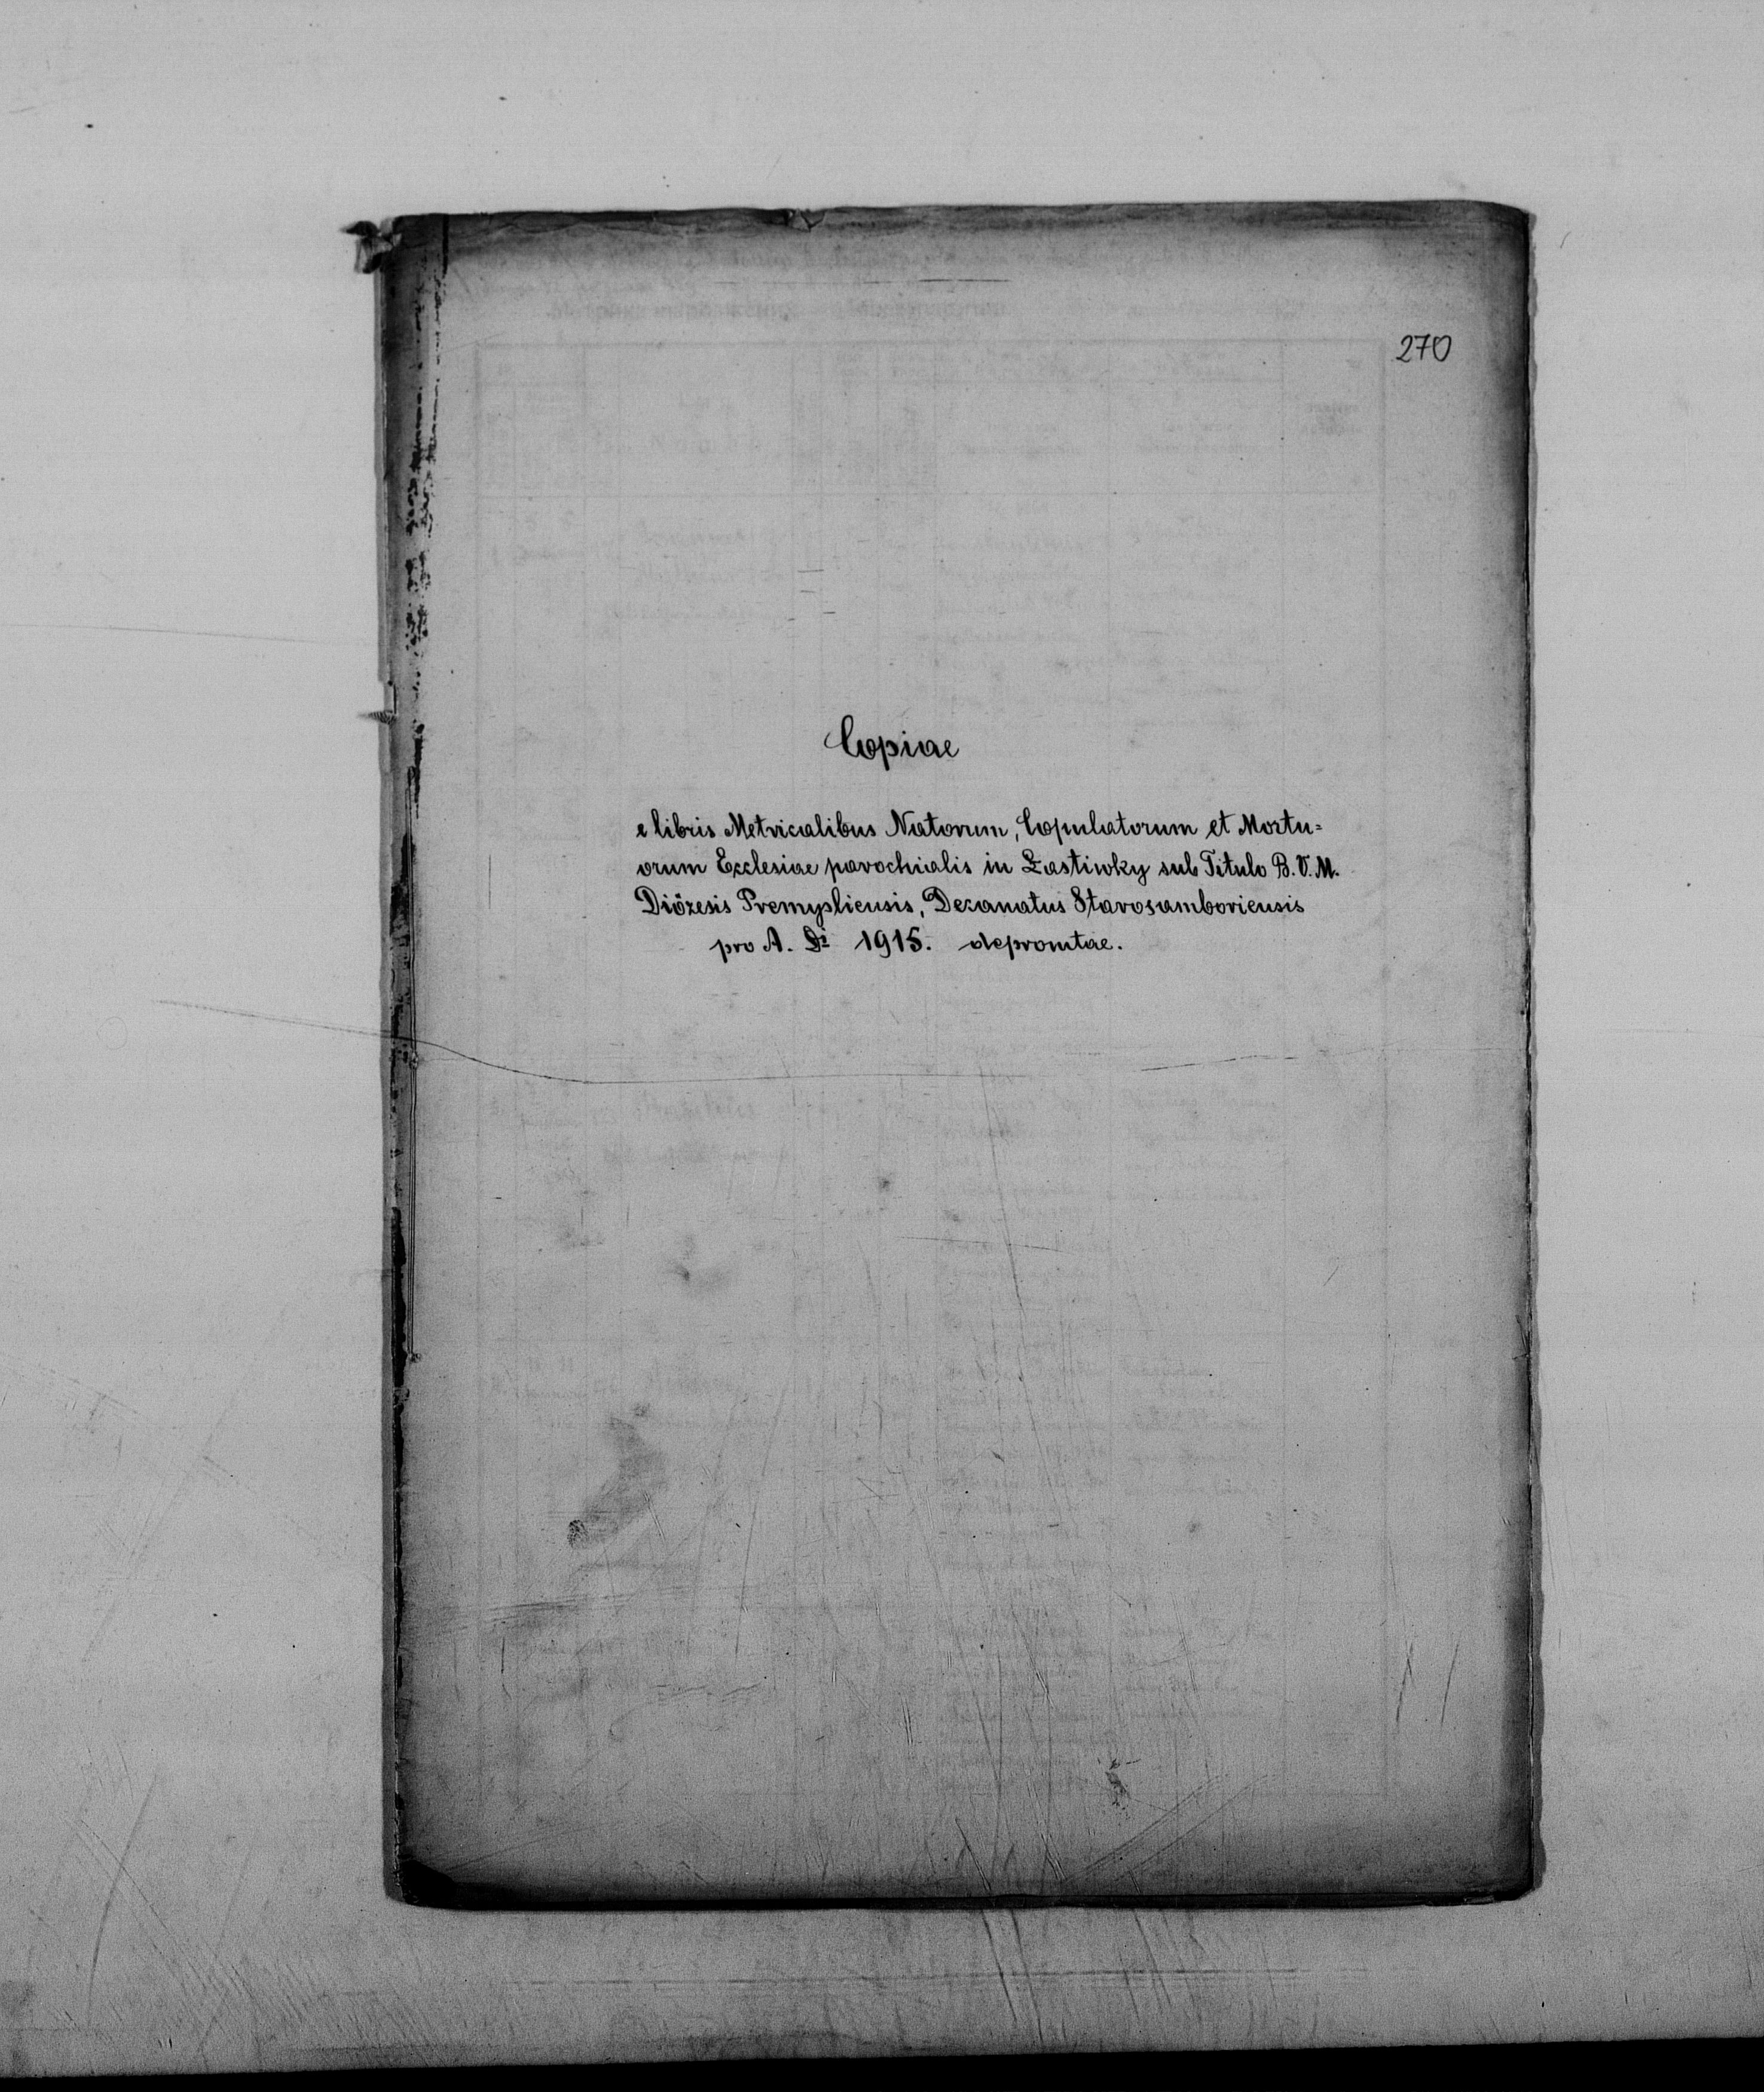 270
Copiae
e libris Metricalibus Natorum, Copulatorum et Mortu=
orum Ecclesiae parochialis in Łastiwky sub Titulo B. V. M.
Diözesis Premysliensis, Decanatus Starosamboriensis
pro A. Di 1915. depromtae.